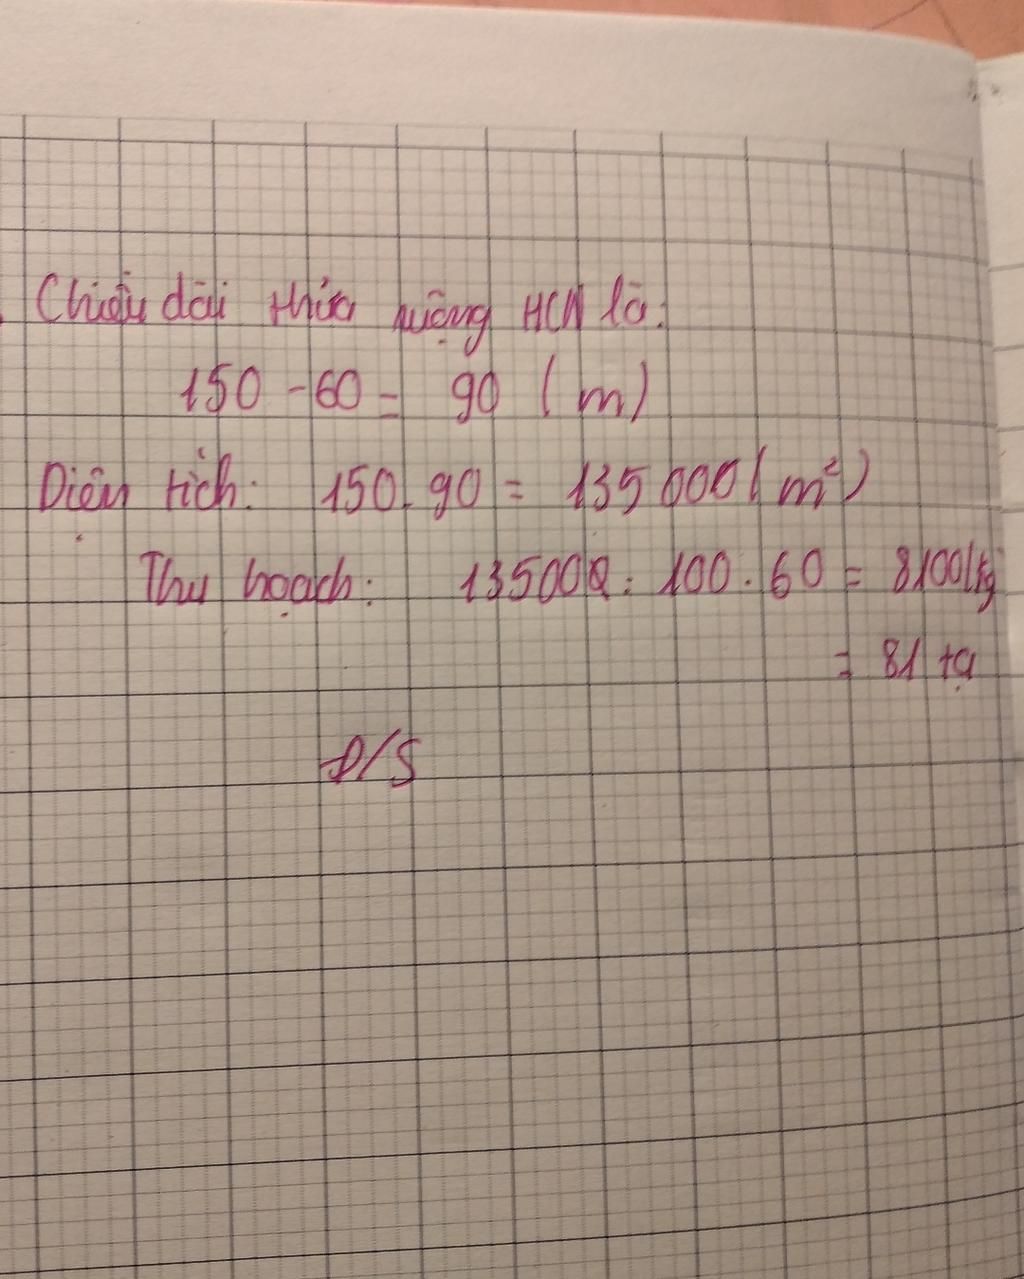 Chiều dài thửa ruộng HCN là:
150 - 60 = 90 (m)
Diện tích: 150. 90 = 135 000 (m²)
Thu hoạch: 135000 : 100 . 60 = 8100 (kg
= 81 tạ
Đ/S